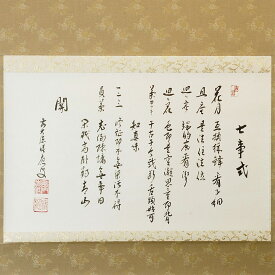 七事式
花月 互換機鋒看子細
且座 是法住法位
廻炭 端的底看聻
廻花 色即是空凝思量即背
于古于今截断舌頭始可
知真味
一二三 修証即不無染汚不得
員茶 老倒疎慵無事日
閑眠高臥対青山